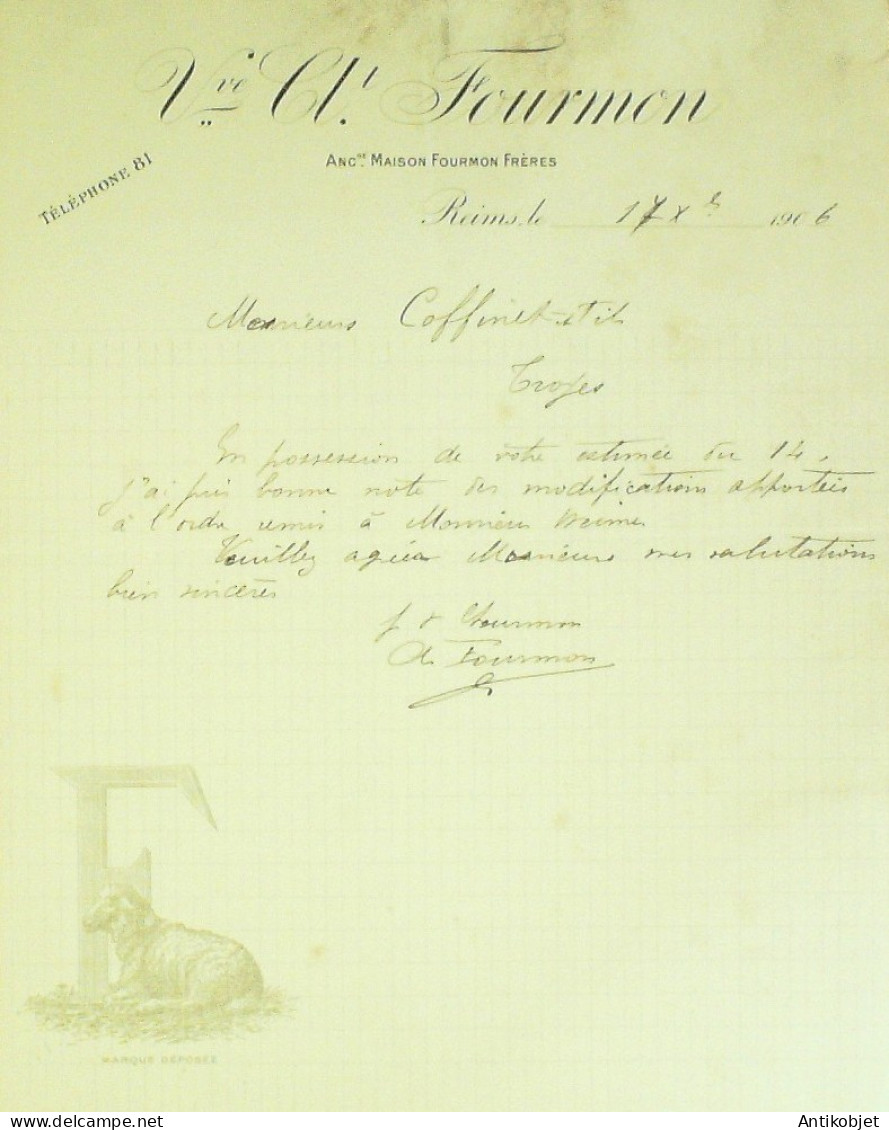 Vve Clt. Fourmon
Ancne. Maison Fourmon Frères
Téléphone 81
Reims, le 17 Xb 1906
Monsieur Coffinet
Troyes
En possession de votre estimée du 14,
j'ai pris bonne note des modifications apportées
à l'ordre remis à Monsieur
Veuillez agréer Monsieur mes salutations
bien sincères
Fourmon
Fourmon
MARQUE DÉPOSÉE
www.delcampe.net
Antikobjet